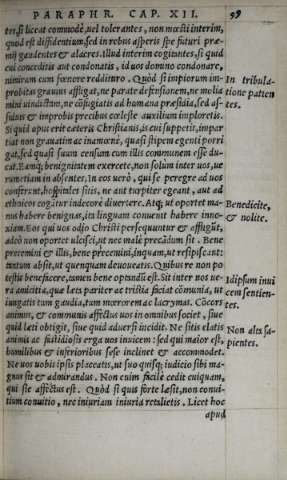 PARAPHR. CAP. XII. 99
ter, si liceat commodè, uel tolerantes, non mœsti interim,
quod est diffidentium, sed in rebus asperis spe futuri præ-
mij gaudentes & alacres. Illud interim cogitantes, si quid
cui conceditis aut condonatis, id uos domino condonare,
nimirum cum fœnore reddituro. Quòd si impiorum im-
probitas grauius affligat, ne parate defensionem, ne molia
mini uindictam, ne cōfugiatis ad humana præsidia, sed as-
siduis & improbis precibus cœleste auxilium imploretis.
Si quid opus erit cæteris Christianis, is cui suppetit, impar
tiat non grauatim ac inamœnè, quasi stipem egenti porri
gat, sed quasi suum censum cum illis communem esse du-
cat. Eamq; benignitatem exercete, non solum inter uos, ue
rumetiam in absentes. In eos uerò, qui se peregre ad uos
conferunt, hospitales sitis, ne aut turpiter egeant, aut ad
ethnicos cogātur indecore diuertere. Atq; ut oportet ma-
nus habere benignas, ita linguam conuenit habere inno-
xiam. Eos qui uos odio Christi persequuntur & affligūt,
adeò non oportet ulcisci, ut nec malè precādum sit. Bene
precemini & illis, bene precemini, inquam, ut resipiscant:
tantum absit, ut quenquam deuoueatis. Quibus re non po
testis benefacere, tamen bene optandū est. Sit inter uos ue-
ra amicitia, quæ læta pariter ac tristia faciat cōmunia, ut
iungatis tum gaudia, tum mœrorem ac lacrymas. Cōcors
animus, & communis affectus uos in omnibus societ, siue
quid læti obtigit, siue quid aduersi incidit. Ne sitis elatis
animis ac fastidiosis erga uos inuicem: sed qui maior est,
humilibus & inferioribus sese inclinet & accommodet.
Ne uos uobis ipsis placeatis, ut suo quisq; iudicio sibi ma-
gnus sit & admirandus. Non enim facile cedit cuiquam,
qui sic affectus est. Quòd si quis fortè læsit, non conui-
tium conuitio, nec iniuriam iniuria retalietis. Licet hoc
apud
In tribula-
tione patien
tes.
Benedicite,
& nolite.
Idipsum inui
cem sentien-
tes.
Non alta sa-
pientes.